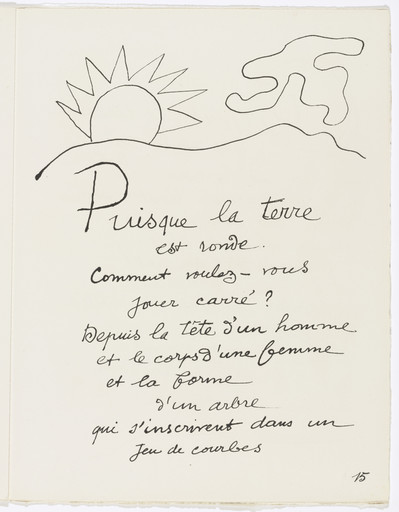 Puisque la terre
est ronde.
Comment voulez-vous
jouer carré ?
Depuis la tête d'un homme
et le corps d'une femme
et la forme
d'un arbre
qui s'inscrivent dans un
jeu de courbes
15